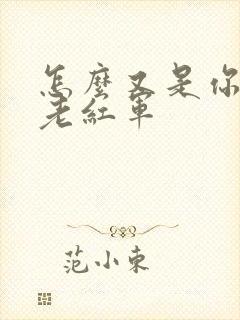 怎麼又是你
老紅軍
范小東